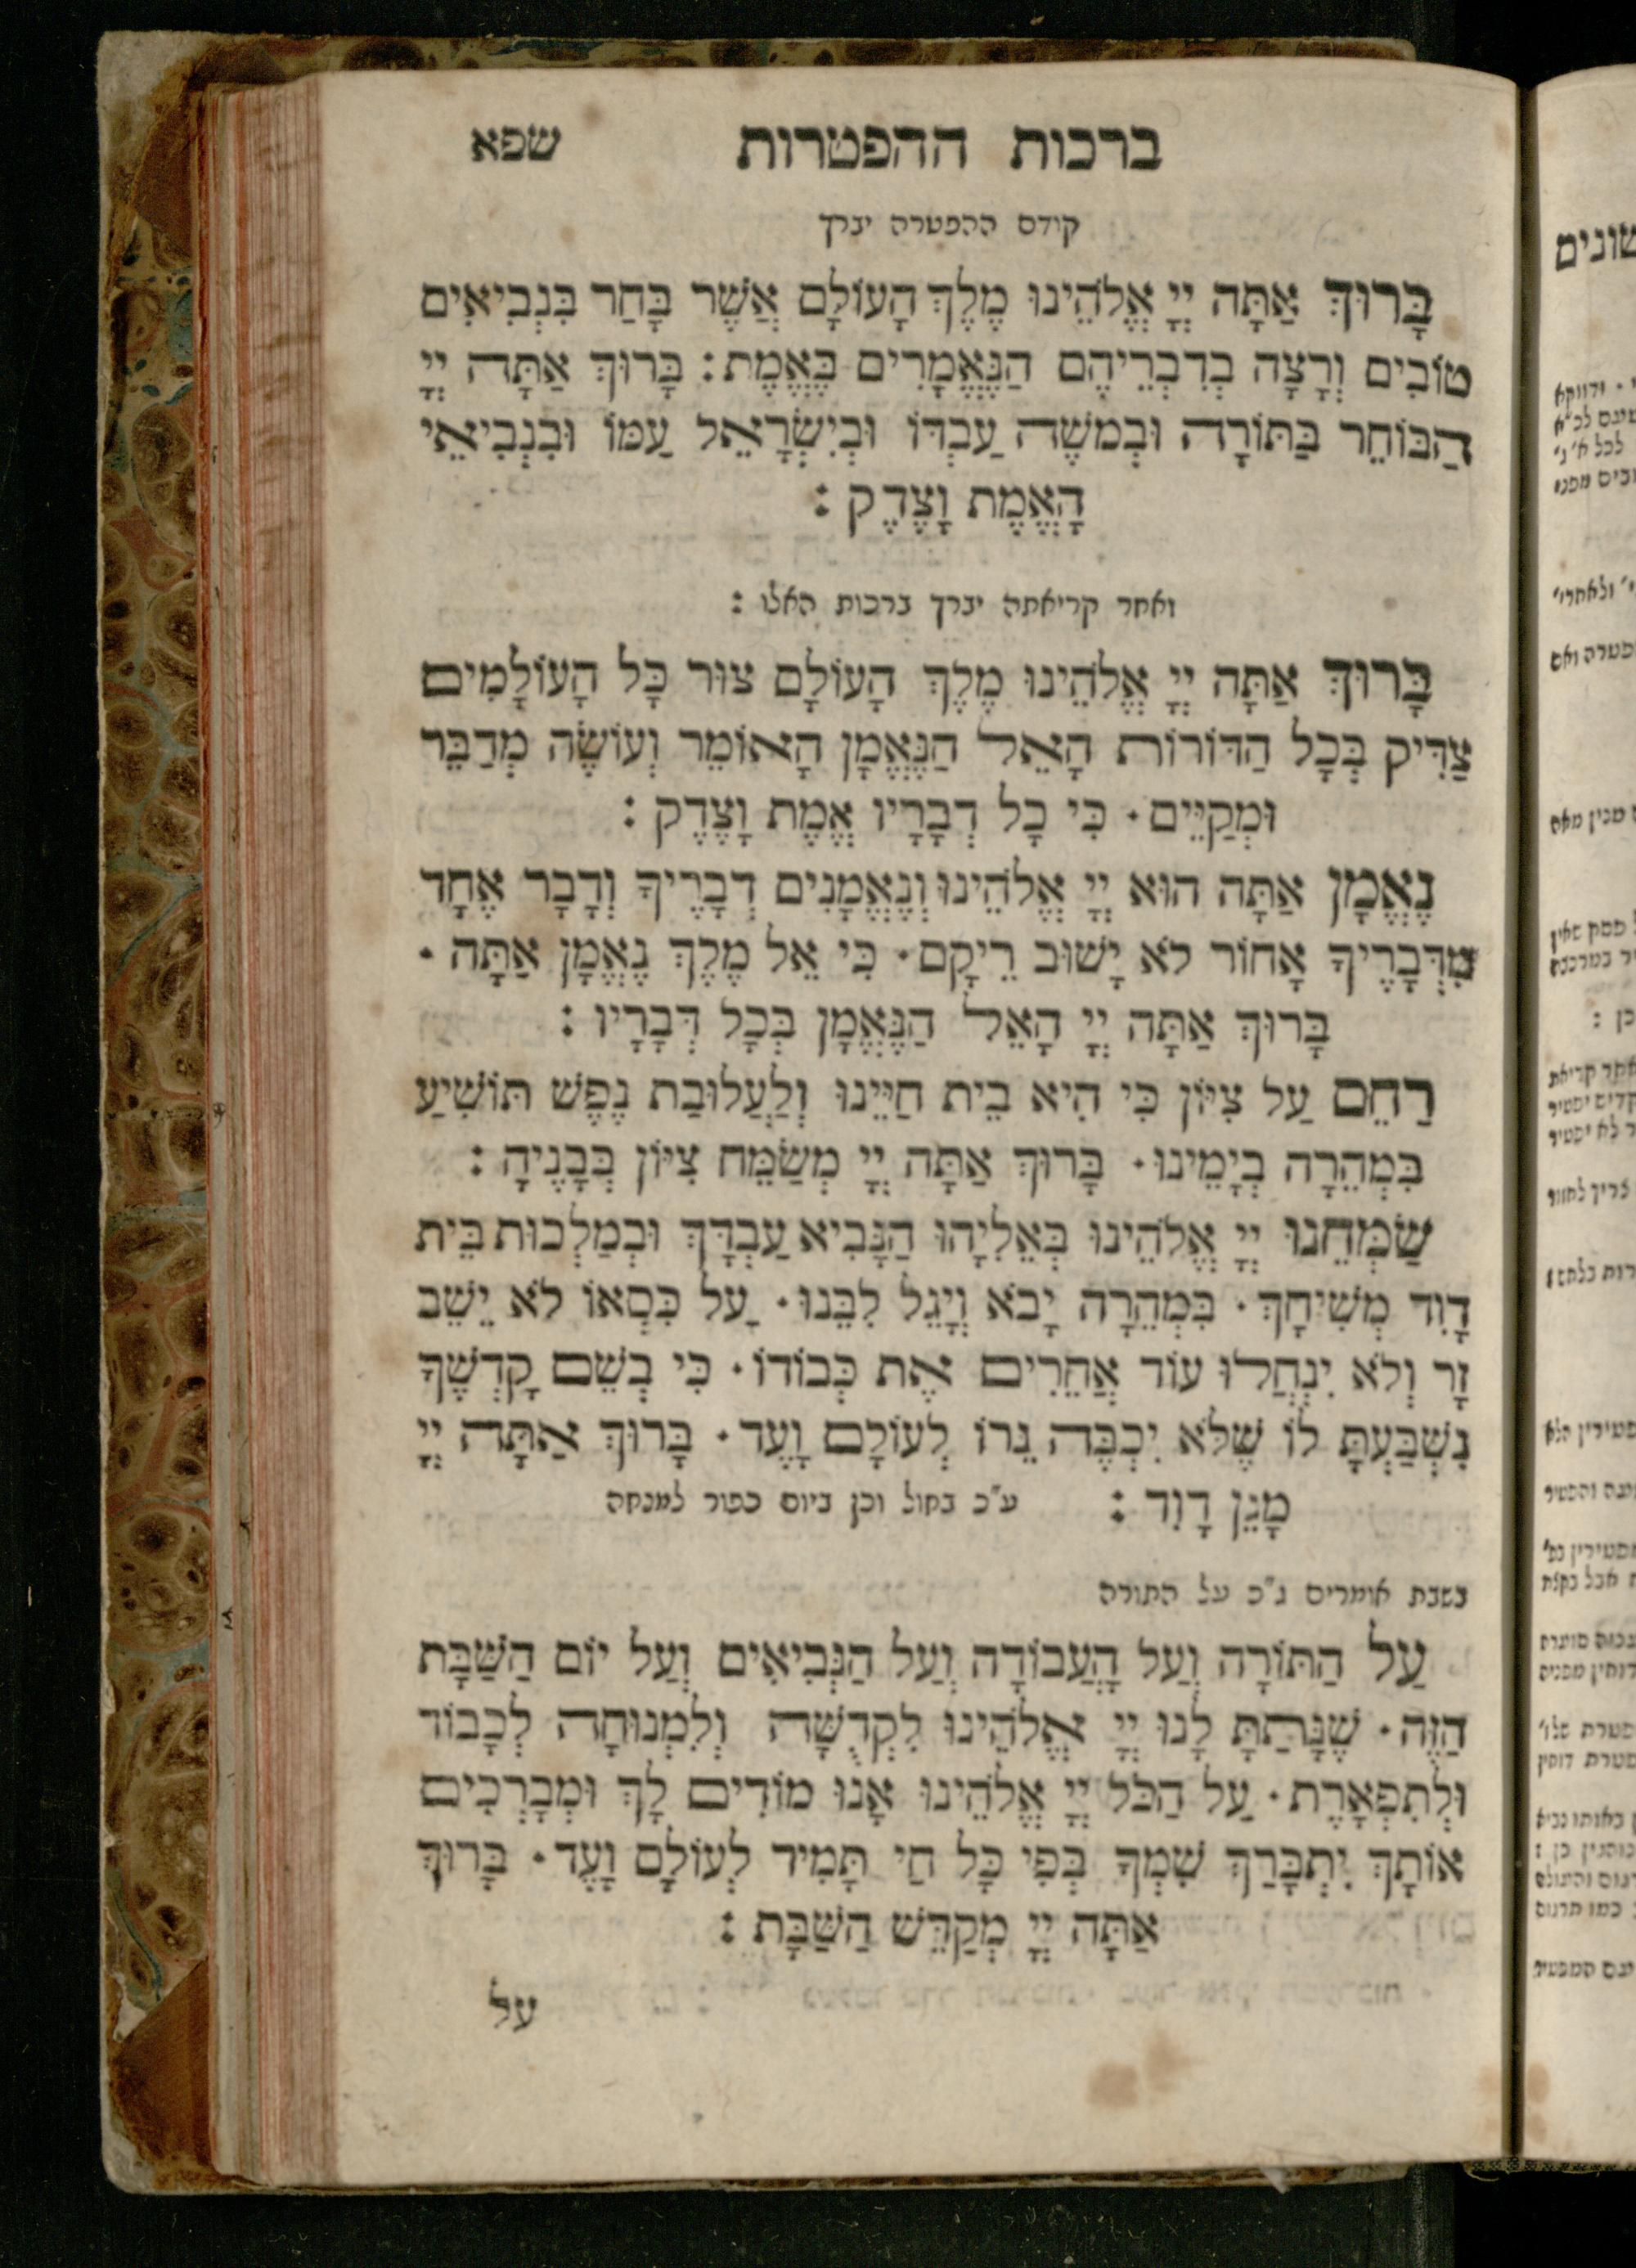 ברכות ההפטרות שפא
קודם ההפטרה יברך
בָּרוּךְ אַתָּה יְיָ אֱלֹהֵינוּ מֶלֶךְ הָעוֹלָם אֲשֶׁר בָּחַר בִּנְבִיאִים
טוֹבִים וְרָצָה בְדִבְרֵיהֶם הַנֶּאֱמָרִים בֶּאֱמֶת : בָּרוּךְ אַתָּה יְיָ
הַבּוֹחֵר בַּתּוֹרָה וּבְמשֶׁה עַבְדּוֹ וּבְיִשְׂרָאֵל עַמּוֹ וּבִנְבִיאֵי
הָאֱמֶת וָצֶדֶק :
ואחר קריאתה יברך ברכות האלו :
בָּרוּךְ אַתָּה יְיָ אֱלֹהֵינוּ מֶלֶךְ הָעוֹלָם צוּר כָּל הָעוֹלָמִים
צַדִּיק בְּכָל הַדּוֹרוֹת הָאֵל הַנֶּאֱמָן הָאוֹמֵר וְעוֹשֶׂה מְדַבֵּר
וּמְקַיֵּים · כִּי כָל דְּבָרָיו אֱמֶת וָצֶדֶק :
נֶאֱמָן אַתָּה הוּא יְיָ אֱלֹהֵינוּ וְנֶאֱמָנִים דְּבָרֶיךָ וְדָבָר אֶחָד
מִדְּבָרֶיךָ אָחוֹר לֹא יָשׁוּב רֵיקָם · כִּי אֵל מֶלֶךְ נֶאֱמָן אַתָּה ·
בָּרוּךְ אַתָּה יְיָ הָאֵל הַנֶּאֱמָן בְּכָל דְּבָרָיו :
רַחֵם עַל צִיּוֹן כִּי הִיא בֵּית חַיֵּינוּ וְלַעֲלוּבַת נֶפֶשׁ תּוֹשִׁיעַ
בִּמְהֵרָה בְיָמֵינוּ · בָּרוּךְ אַתָּה יְיָ מְשַׂמֵּחַ צִיּוֹן בְּבָנֶיהָ :
שַׂמְּחֵנוּ יְיָ אֱלֹהֵינוּ בְּאֵלִיָּהוּ הַנָּבִיא עַבְדָּךְ וּבְמַלְכוּת בֵּית
דָּוִד מְשִׁיחָךְ · בִּמְהֵרָה יָבֹא וְיָגֵל לִבֵּנוּ · עַל כִּסְאוֹ לֹא יֵשֵׁב
זָר וְלֹא יִנְחֲלוּ עוֹד אֲחֵרִים אֶת כְּבוֹדוֹ · כִּי בְשֵׁם קָדְשֶׁךָ
נִשְׁבַּעְתָּ לּוֹ שֶׁלֹּא יִכְבֶּה נֵרוֹ לְעוֹלָם וָעֶד · בָּרוּךְ אַתָּה יְיָ
מָגֵן דָּוִד : ע"כ בחול וכן ביום כפור למנחה
בשבת אומרים ג"כ על התורה
עַל הַתּוֹרָה וְעַל הָעֲבוֹדָה וְעַל הַנְּבִיאִים וְעַל יוֹם הַשַּׁבָּת
הַזֶּה · שֶׁנָּתַתָּ לָנוּ יְיָ אֱלֹהֵינוּ לִקְדֻשָּׁה וְלִמְנוּחָה לְכָבוֹד
וּלְתִפְאָרֶת · עַל הַכֹּל יְיָ אֱלֹהֵינוּ אָנוּ מוֹדִים לָךְ וּמְבָרְכִים
אוֹתָךְ יִתְבָּרַךְ שִׁמְךָ בְּפִי כָּל חַי תָּמִיד לְעוֹלָם וָעֶד · בָּרוּךְ
אַתָּה יְיָ מְקַדֵּשׁ הַשַּׁבָּת :
על